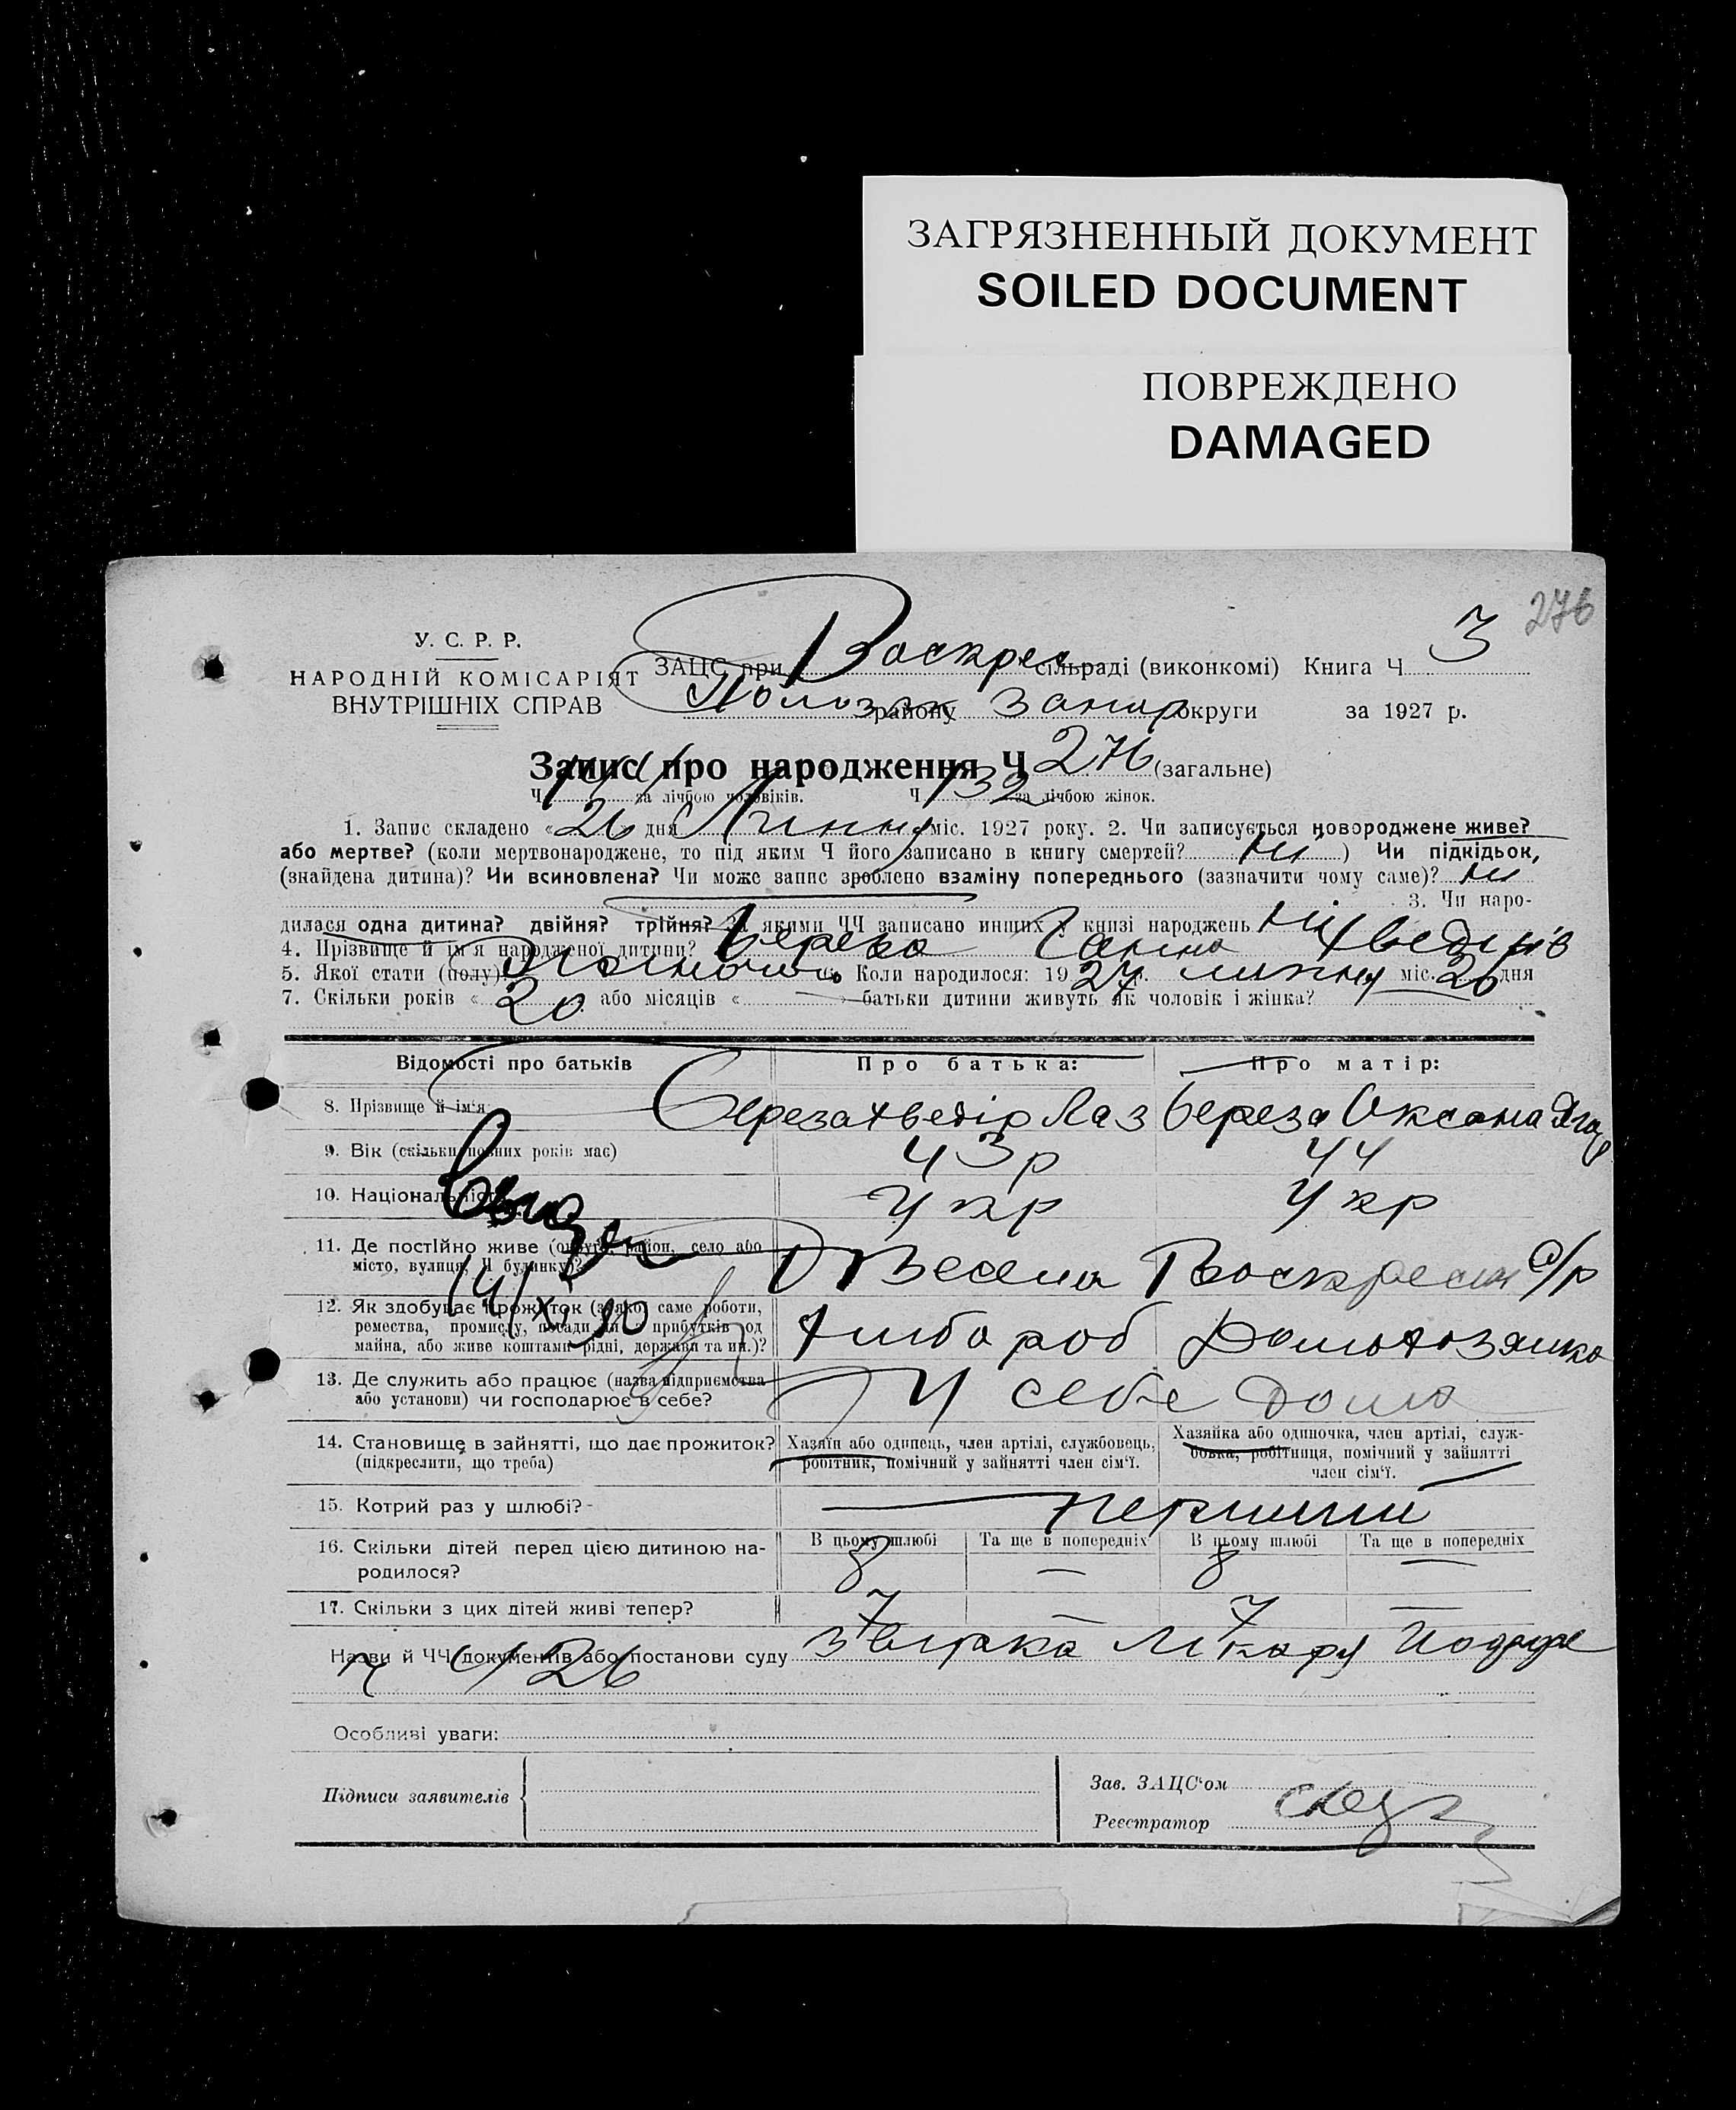 ЗАГРЯЗНЕННЫЙ ДОКУМЕНТ
SOILED DOCUMENT
ПОВРЕЖДЕНО
DAMAGED
276
У. С. Р. Р.
НАРОДНІЙ КОМІСАРІЯТ
ВНУТРІШНІХ СПРАВ
ЗАЦС при Воскрес сільраді (виконкомі) Книга Ч 3
району Запор округи за 1927 р.
Запис про народження Ч 276 (загальне)
Ч 144 за лічбою чоловіків. Ч 132 за лічбою жінок.
1. Запис складено « 26 дня Липня міс. 1927 року. 2. Чи записується новороджене живе?
або мертве? (коли мертвонароджене, то під яким Ч його записано в книгу смертей? Ні ) Чи підкідьок,
(знайдена дитина)? Чи всиновлена? Чи може запис зроблено взаміну попереднього (зазначити чому саме)? Ні
3. Чи наро-
дилася одна дитина? двійня? трійня? За якими ЧЧ записано инших у книзі народжень Ні
4. Прізвище й ім'я народженої дитини? Береза Ганна Хведорів
5. Якої стати (полу) Жіночої 6. Коли народилося: 1927 р. липня міс. 20 дня
7. Скільки років « 20 або місяців « — » батьки дитини живуть як чоловік і жінка?
Відомості про батьків Про батька: Про матір:
8. Прізвище й ім'я Береза Хведір Лаз Береза Оксана
9. Вік (скільки повних років має) 43 р 44
10. Національність Укр Укр
11. Де постійно живе (округа, район, село або
місто, вулиця, Ч будинку)? Весела Воскресен с/р
12. Як здобуває прожиток (з якої саме роботи,
ремества, промислу, посади чи з прибутків од
майна, або живе коштами рідні, держави та ин.)? Хлібороб Домохозяйка
13. Де служить або працює (назва підприємства
або установи) чи господарює в себе? У себе дома
14. Становище в зайнятті, що дає прожиток?
(підкреслити, що треба)
Хазяїн або одинець, член артілі, службовець,
робітник, помічний у зайнятті член сім'ї.
Хазяйка або одиночка, член артілі, служ-
бовка, робітниця, помічний у зайнятті
член сім'ї.
15. Котрий раз у шлюбі? — перший
16. Скільки дітей перед цією дитиною на-
родилося?
В цьому шлюбі Та ще в попередніх В цьому шлюбі Та ще в попередніх
8 — 8 —
17. Скільки з цих дітей живі тепер? 7 — 7 —
Назви й ЧЧ документів або постанови суду
Особливі уваги:
Підписи заявителів
Зав. ЗАЦС'ом
Реєстратор